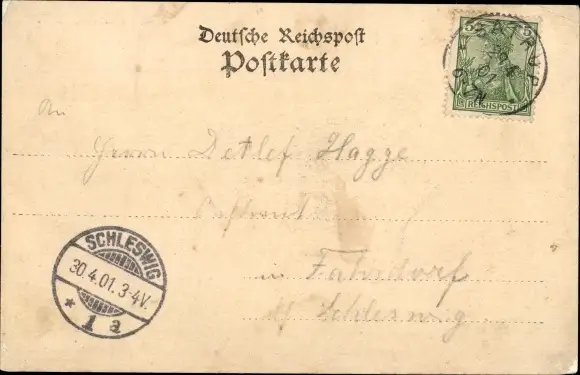 Deutsche Reichspost
Postkarte
5 5
REICHSPOST
SATRUP
An
Herrn Detlef Hagge
in Fahrdorf
b/ Schleswig
SCHLESWIG
30.4.01. 3-4V.
* 1 a